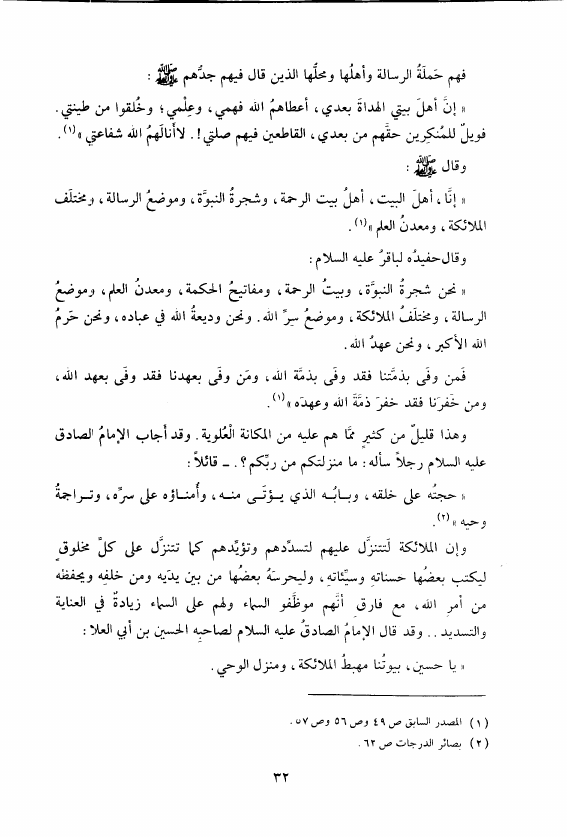 فهم حَملَةُ الرسالة وأهلُها ومحلُّها الذين قال فيهم جدُّهم ﷺ :
« إنَّ أهلَ بيتي الهداةَ بعدي، أعطاهمُ الله فهمي، وعِلْمي؛ وخُلقوا من طينتي.
فويلٌ للمُنكِرين حقَّهم من بعدي، القاطعين فيهم صلتي!. لاأنالَهمُ الله شفاعتي »(١).
وقال ﷺ :
« إنَّا، أهلَ البيت، أهلُ بيت الرحمة، وشجرةُ النبوَّة، وموضعُ الرسالة، ومختلَف
الملائكة، ومعدنُ العلم »(١).
وقال حفيدُه لباقرُ عليه السلام:
« نحن شجرةُ النبوَّة، وبيتُ الرحمة، ومفاتيحُ الحكمة، ومعدنُ العلم، وموضعُ
الرسالة، ومختلَفُ الملائكة، وموضعُ سِرِّ الله. ونحن وديعةُ الله في عباده، ونحن حَرمُ
الله الأكبر، ونحن عهدُ الله.
فمن وفَى بذمَّتنا فقد وفَى بذمَّة الله، ومَن وفَى بعهدنا فقد وفَى بعهد الله،
ومن خَفرَنا فقد خفرَ ذمَّةَ الله وعهدَه »(١).
وهذا قليلٌ من كثيرٍ ممَّا هم عليه من المكانة العُلوية. وقد أجاب الإمامُ الصادق
عليه السلام رجلاً سأله: ما منزلتكم من ربِّكم؟. ـ قائلاً:
« حجتُه على خلقه، وبـابُـه الذي يـؤتَـى منـه، وأُمنـاؤه على سرِّه، وتـراجمةُ
وحيه »(٢).
وإن الملائكة لَتتنزَّل عليهم لتسدِّدهم وتؤيِّدهم كما تتنزَّل على كلِّ مخلوقٍ
ليكتب بعضُها حسناتهِ وسيِّئاتهِ، وليحرسَهُ بعضُها من بين يدَيه ومن خلفِه ويحفظه
من أمرِ الله، مع فارق أنَّهم موظَّفو السماء ولهم على السماء زيادةٌ في العناية
والتسديد.. وقد قال الإمامُ الصادقُ عليه السلام لصاحبِه الحسين بن أبي العلا:
« يا حسين، بيوتُنا مهبطُ الملائكة، ومنزل الوحي.
(١) المصدر السابق ص ٤٩ وص ٥٦ وص ٥٧.
(٢) بصائر الدرجات ص ٦٢.
٣٢